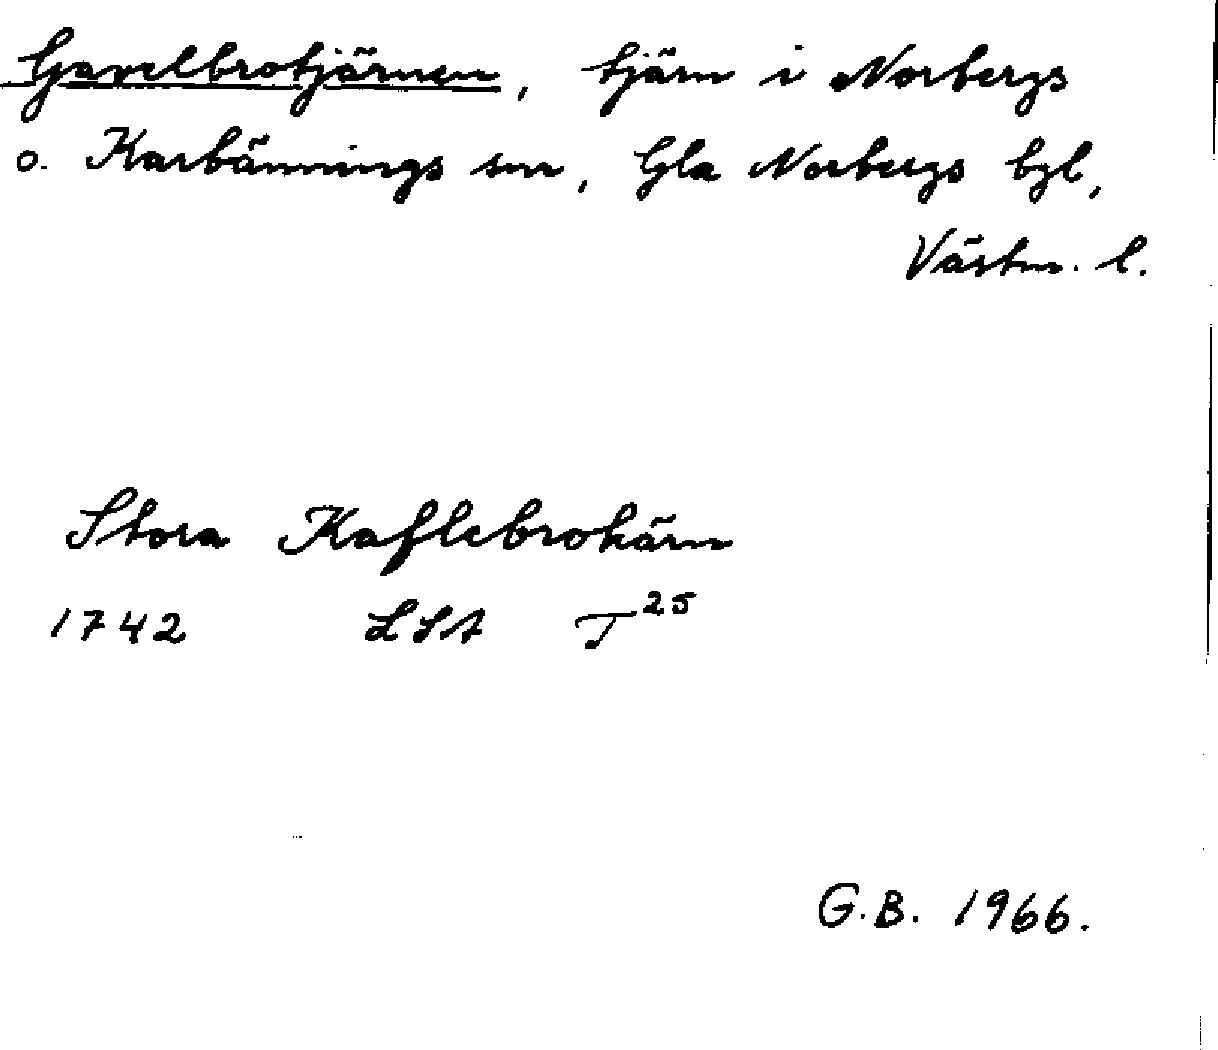 Gavelbrotjärnen, tjärn i Norbergs
o. Karbennings snr, Gla Norbergs bgl,
Västm. l.
Stora Kaflebrokärn
1742 LSA T25
G.B. 1966.